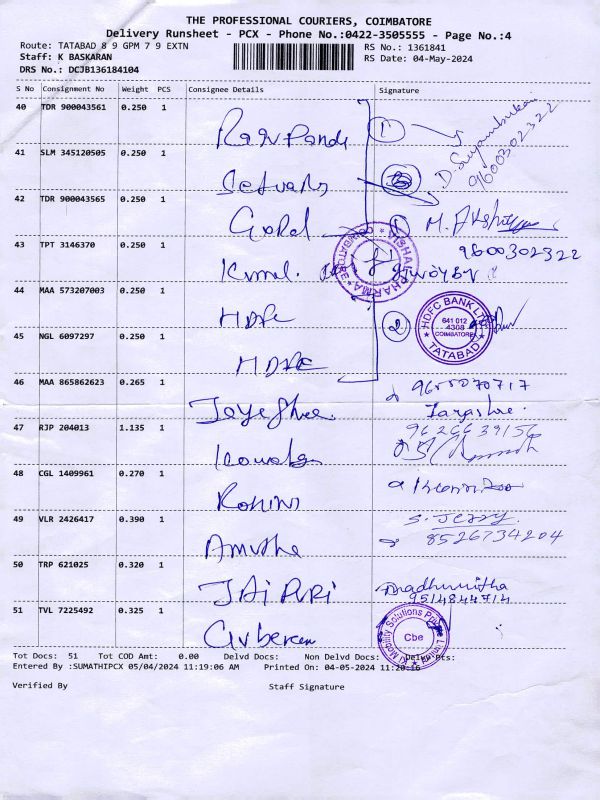 THE PROFESSIONAL COURIERS, COIMBATORE
Delivery Runsheet - PCX - Phone No.:0422-3505555 - Page No.:4
Route: TATABAD 8 9 GPM 7 9 EXTN
RS No.: 1361841
Staff: K BASKARAN
RS Date: 04-May-2024
DRS No.: DCJB136184104
S No Consignment No Weight PCS Consignee Details Signature
40 TDR 900043561 0.250 1
1
9600302322
41 SLM 345120505 0.250 1
42 TDR 900043565 0.250 1
Gopal
1 M.
9600302322
43 TPT 3146370 0.250 1
Kumal.
VISHAL PHARMA
COIMBATORE
44 MAA 573207003 0.250 1
HDFC
2
HDFC BANK LTD
641 012
4308
COIMBATORE
TATABAD
45 NGL 6097297 0.250 1
HDFC
46 MAA 865862623 0.265 1
Jayashree
Jayashree
47 RJP 204013 1.135 1
9626639156
48 CGL 1409961 0.270 1
Rohini
49 VLR 2426417 0.390 1
S. Jerry.
8526734204
Amutha
50 TRP 621025 0.320 1
JAi PURi
Madhumitha
9514844714
51 TVL 7225492 0.325 1
KI Mobility Solutions Private Limited
Cbe
Tot Docs: 51 Tot COD Amt: 0.00 Delvd Docs: Non Delvd Docs: Delvd Pts:
Entered By :SUMATHIPCX 05/04/2024 11:19:06 AM Printed On: 04-05-2024 11:20:16
Verified By Staff Signature